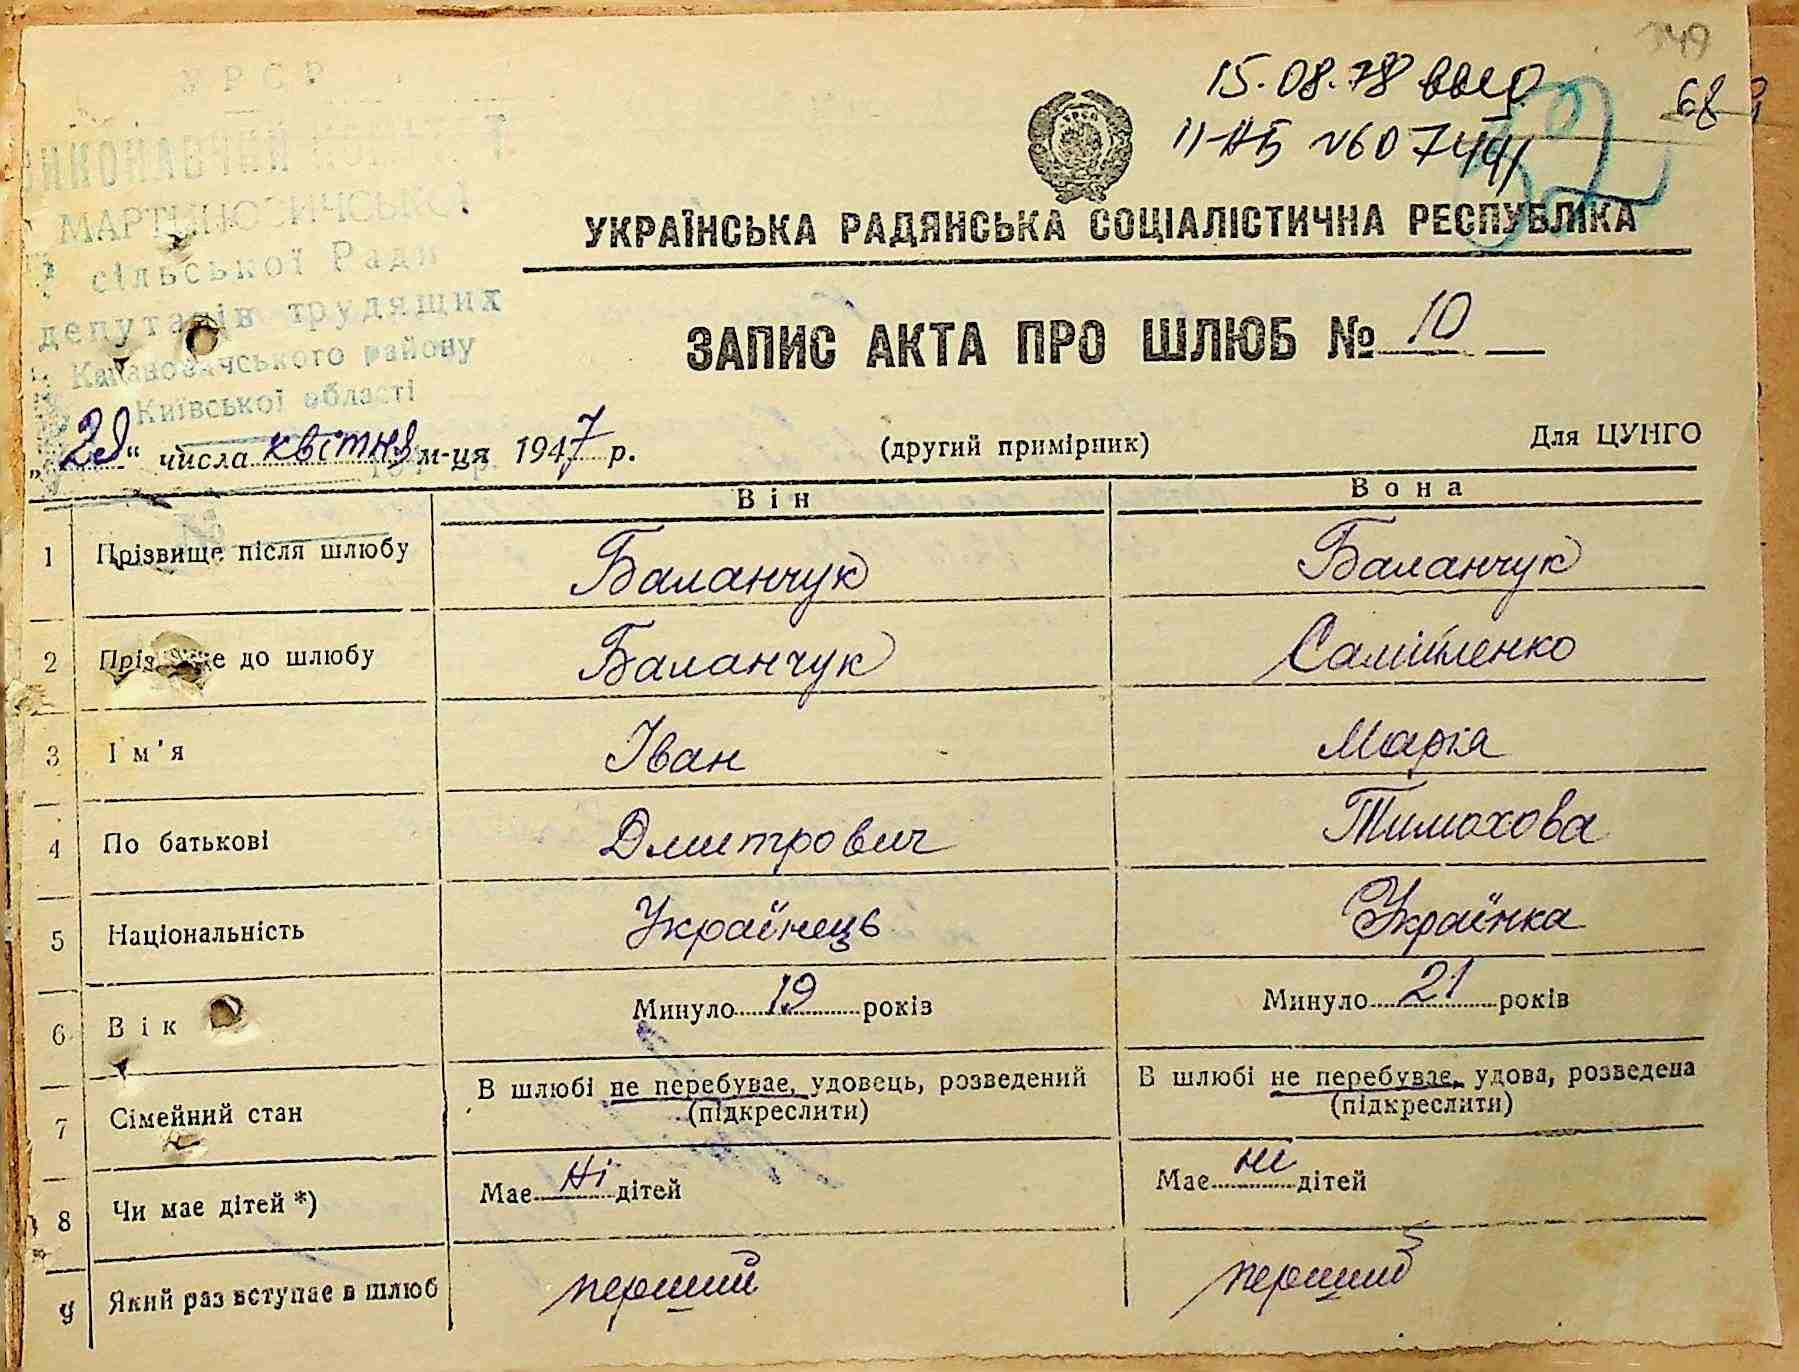 349
15.08.78 выд
II-НБ №607441
68
52
УРСР
ВИКОНАВЧИЙ КОМІТЕТ
МАРТИНОВИЧСЬКОЇ
сільської Ради
депутатів трудящих
Кагановичського району
Київської області
УКРАЇНСЬКА РАДЯНСЬКА СОЦІАЛІСТИЧНА РЕСПУБЛІКА
ЗАПИС АКТА ПРО ШЛЮБ № 10
„29“ числа квітня м-ця 1947 р. (другий примірник) Для ЦУНГО
Він Вона
1 Прізвище після шлюбу Баланчук Баланчук
2 Прізвище до шлюбу Баланчук Самійленко
3 Ім'я Іван Марія
4 По батькові Дмитрович Тимохова
5 Національність Українець Українка
6 Вік Минуло 19 років Минуло 21 років
7 Сімейний стан В шлюбі не перебуває, удовець, розведений В шлюбі не перебуває, удова, розведена
(підкреслити) (підкреслити)
8 Чи має дітей *) Має ні дітей Має ні дітей
9 Який раз вступає в шлюб перший перший